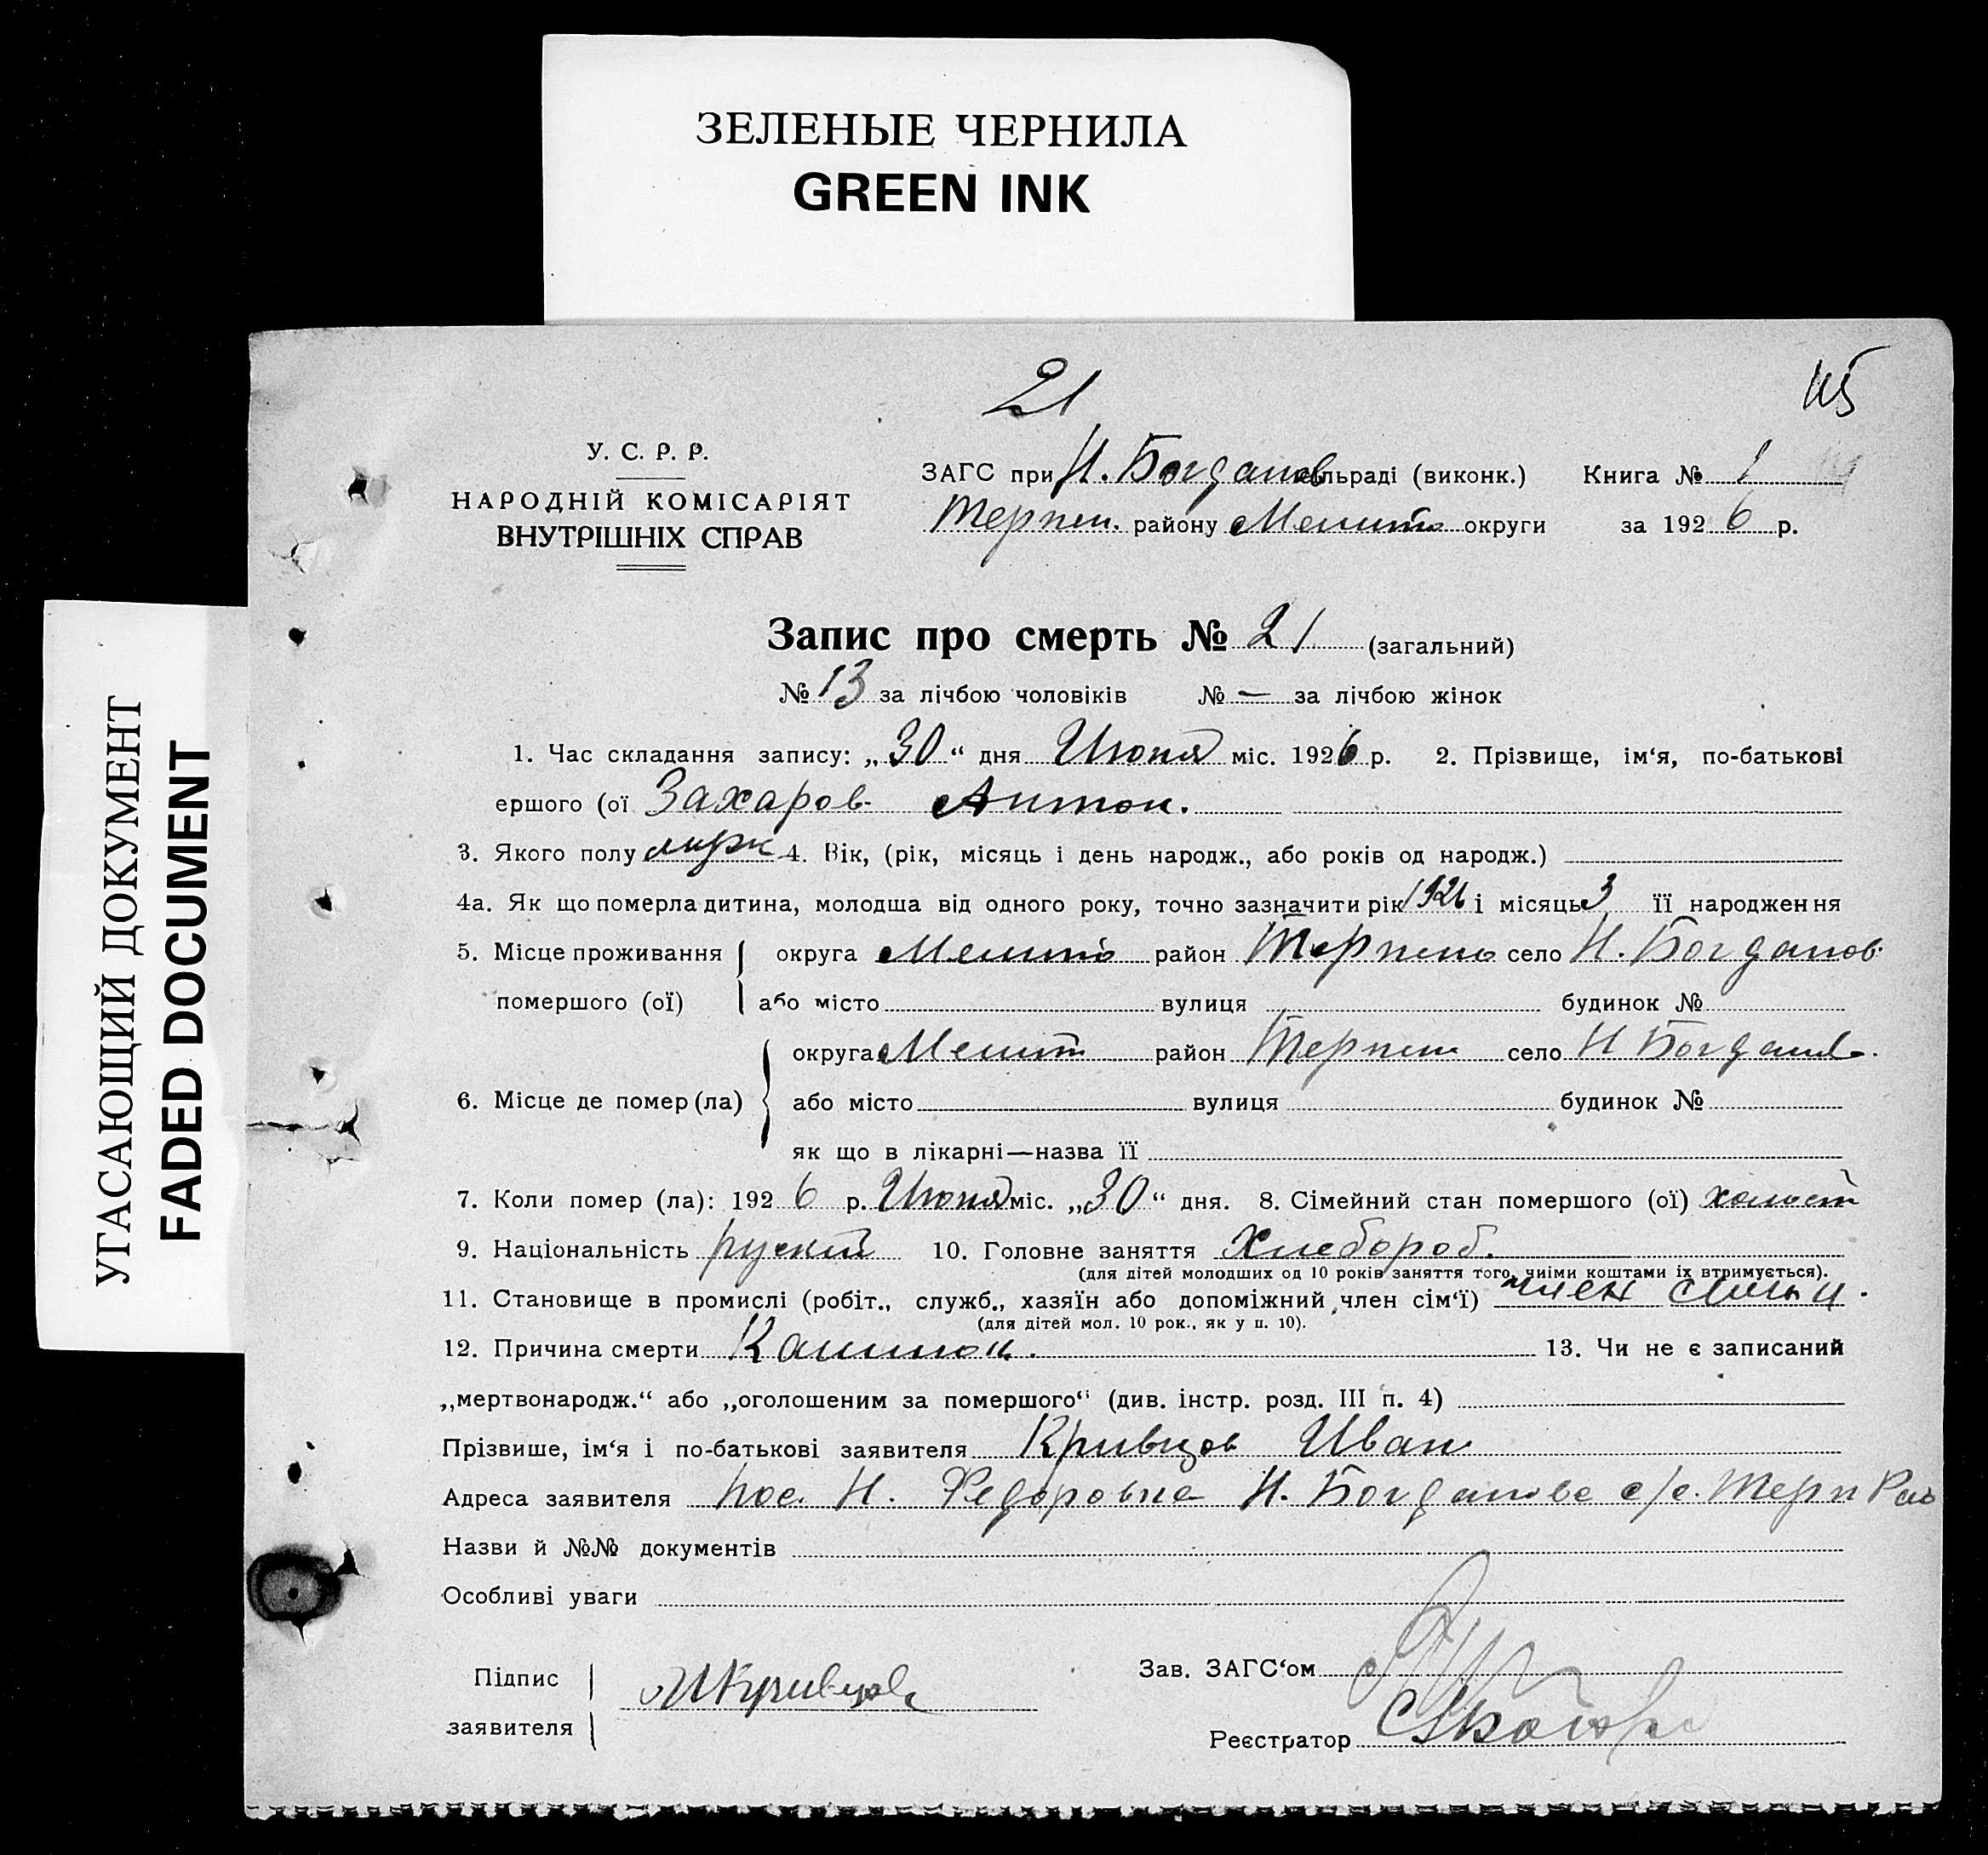 ЗЕЛЕНЫЕ ЧЕРНИЛА
GREEN INK
УГАСАЮЩИЙ ДОКУМЕНТ
FADED DOCUMENT
21
115
У. С. Р. Р.
НАРОДНІЙ КОМІСАРІЯТ
ВНУТРІШНІХ СПРАВ
ЗАГС при Н. Богданов сільраді (виконк.) Книга № 1
Терпен. району Мелит округи за 1926 р.
Запис про смерть № 21 (загальний)
№ 13 за лічбою чоловіків № — за лічбою жінок
1. Час складання запису: „30“ дня Июня міс. 1926 р. 2. Прізвище, ім‘я, по-батькові
ершого (ої Захаров Антон.
3. Якого полу муж 4. Вік, (рік, місяць і день народж., або років од народж.)
4а. Як що померла дитина, молодша від одного року, точно зазначити рік 1926 і місяць 3 її народження
5. Місце проживання округа Мелит район Терпень село Н. Богданов
помершого (ої) або місто вулиця будинок №
округа Мелит район Терпен село Н Богданов.
6. Місце де помер (ла) або місто вулиця будинок №
як що в лікарні—назва її
7. Коли помер (ла): 1926 р. Июня міс. „30“ дня. 8. Сімейний стан помершого (ої) холост
9. Національність руский 10. Головне заняття Хлебороб.
(для дітей молодших од 10 років заняття того, чиїми коштами їх втримується).
11. Становище в промислі (робіт., служб., хазяїн або допоміжний член сім‘ї) член семьи.
(для дітей мол. 10 рок., як у п. 10).
12. Причина смерти 13. Чи не є записаний
„мертвонародж.“ або „оголошеним за помершого“ (див. інстр. розд. III п. 4)
Прізвише, ім‘я і по-батькові заявителя Кривцов Иван
Адреса заявителя пос. Н. Федоровка Н. Богдановс с/с. Терп Ра
Назви й №№ документів
Особливі уваги
Підпис
заявителя
ИКривцов
Зав. ЗАГС‘ом
Реєстратор